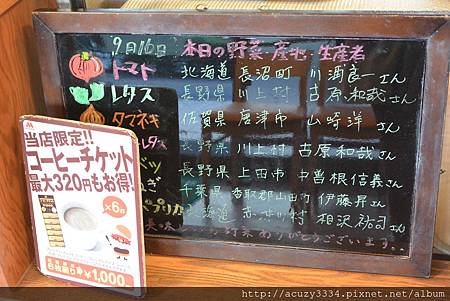 9月16日 本日の野菜・産地・生産者
トマト 北海道 長沼町 川満良一さん
レタス 長野県 川上村 古原和哉さん
タマネギ 佐賀県 唐津市 山崎洋さん
レタス 長野県 川上村 古原和哉さん
長野県 上田市 中曽根信義さん
ねぎ 千葉県 香取郡山田町 伊藤昇さん
パプリカ 北海道 赤井川村 相沢祐司さん
ありがとうございます
当店限定!!
コーヒーチケット
最大320円もお得!
×6杯
6枚綴り ¥1,000
http://acuzy3334.pixnet.net/album